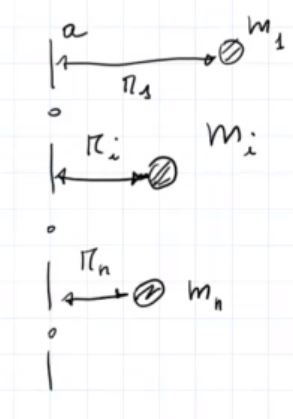 a
m₁
r₁
rᵢ
mᵢ
rₙ
mₙ